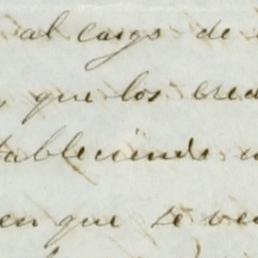 al cargo de
que los cred
tableciendo
en que se ve